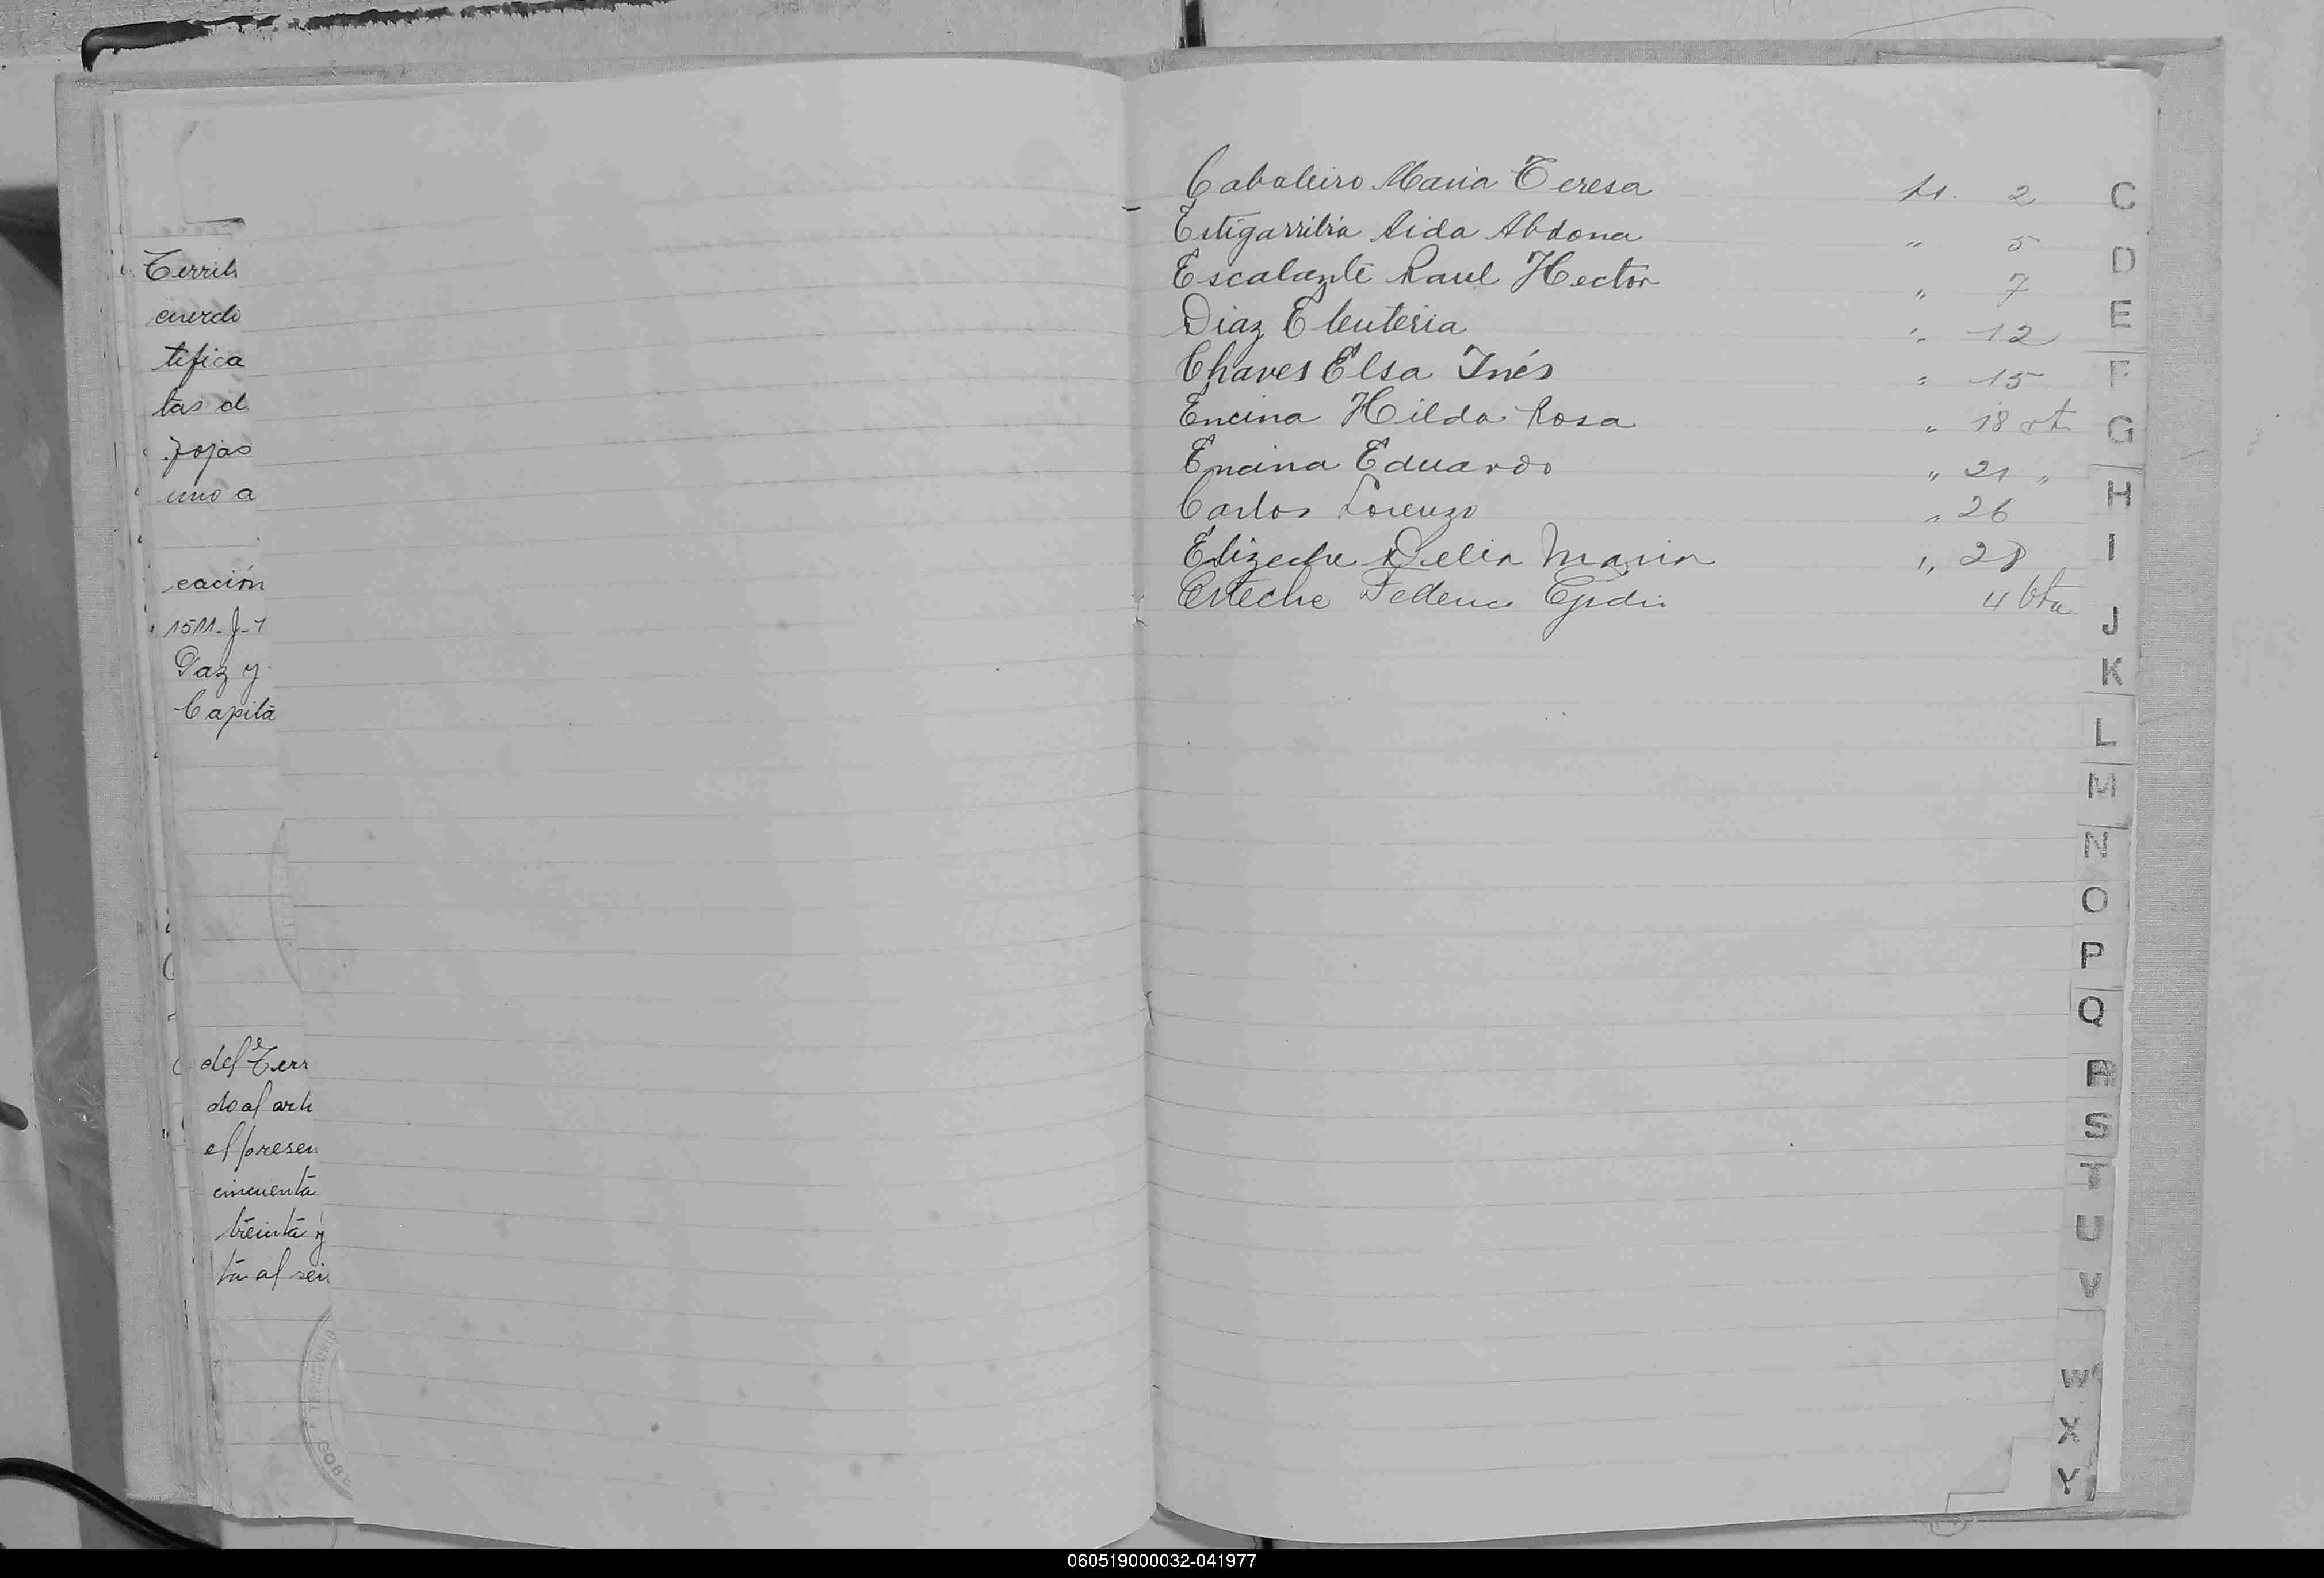 Territ
cuerdo
tifica
tas d
fojas
uno a
cación
1511-J-1
Paz y
Capita
del Terr
do al arti
el presen
cincuenta
treinta y
ta al seis
TERRITORIO
GOBE
Cabaleiro Maria Teresa fs. 2
Estigarribia Aida Abdona " 5
Escalante Raul Hector " 7
Diaz Eleuteria " 12
Chaves Elsa Inés " 15
Encina Hilda Rosa " 18 vt
Encina Eduardo " 21 "
Carlos Lorenzo " 26
Elizeche Delia Maria " 28
Esteche Federico 4 vta
C
D
E
F
G
H
I
J
K
L
M
N
O
P
Q
R
S
T
U
V
W
X
Y
060519000032-041977